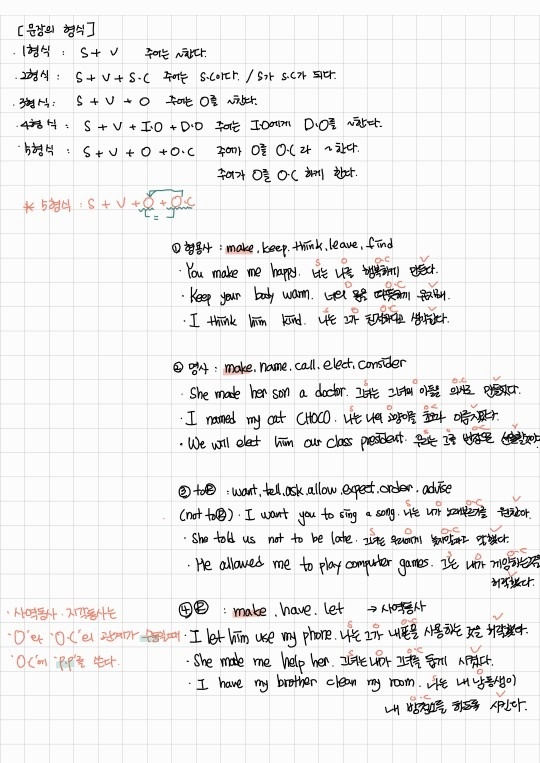 [문장의 형식]
· 1형식 : S + V 주어는 ~한다.
· 2형식 : S + V + S·C 주어는 S·C이다. / S가 S·C가 되다.
· 3형식 : S + V + O 주어는 O를 ~한다.
· 4형식 : S + V + I·O + D·O 주어는 I·O에게 D·O를 ~한다.
· 5형식 : S + V + O + O·C 주어가 O를 O·C라 ~한다.
주어가 O를 O·C하게 한다.
* 5형식 : S + V + O + O·C
=
① 형용사 : make, keep, think, leave, find
S O O·C V
· You make me happy. 너는 나를 행복하게 만든다.
O O·C V
· Keep your body warm. 너의 몸을 따뜻하게 유지해.
S O O·C V
· I think him kind. 나는 그가 친절하다고 생각한다.
② 명사 : make, name, call, elect, consider
S O O·C V
· She made her son a doctor. 그녀는 그녀의 아들을 의사로 만들었다.
S O O·C V
· I named my cat CHOCO. 나는 나의 고양이를 초코라 이름지었다.
S O O·C V
· We will elect him our class president. 우리는 그를 반장으로
③ to : want, tell, ask, allow, expect, order, advise
S O O·C V
(not to) · I want you to sing a song. 나는 네가 노래부르기를 원한다.
S O O·C V
· She told us not to be late. 그녀는 우리에게 늦지말라고 말했다.
S O O·C
· He allowed me to play computer games. 그는 내가 게임하는것을
V
허락했다.
④ : make, have, let → 사역동사
S O O·C V
· I let him use my phone. 나는 그가 내폰을 사용하는 것을 허락했다.
S O O·C V
· She made me help her. 그녀는 내가 그녀를 돕게 시켰다.
S O
· I have my brother clean my room. 나는 내 남동생이
O·C V
내 방청소를 하도록 시킨다.
· 사역동사·지각동사는
"O"와 "O·C"의 관계가
"O·C"에 "P.P"를 쓴다.